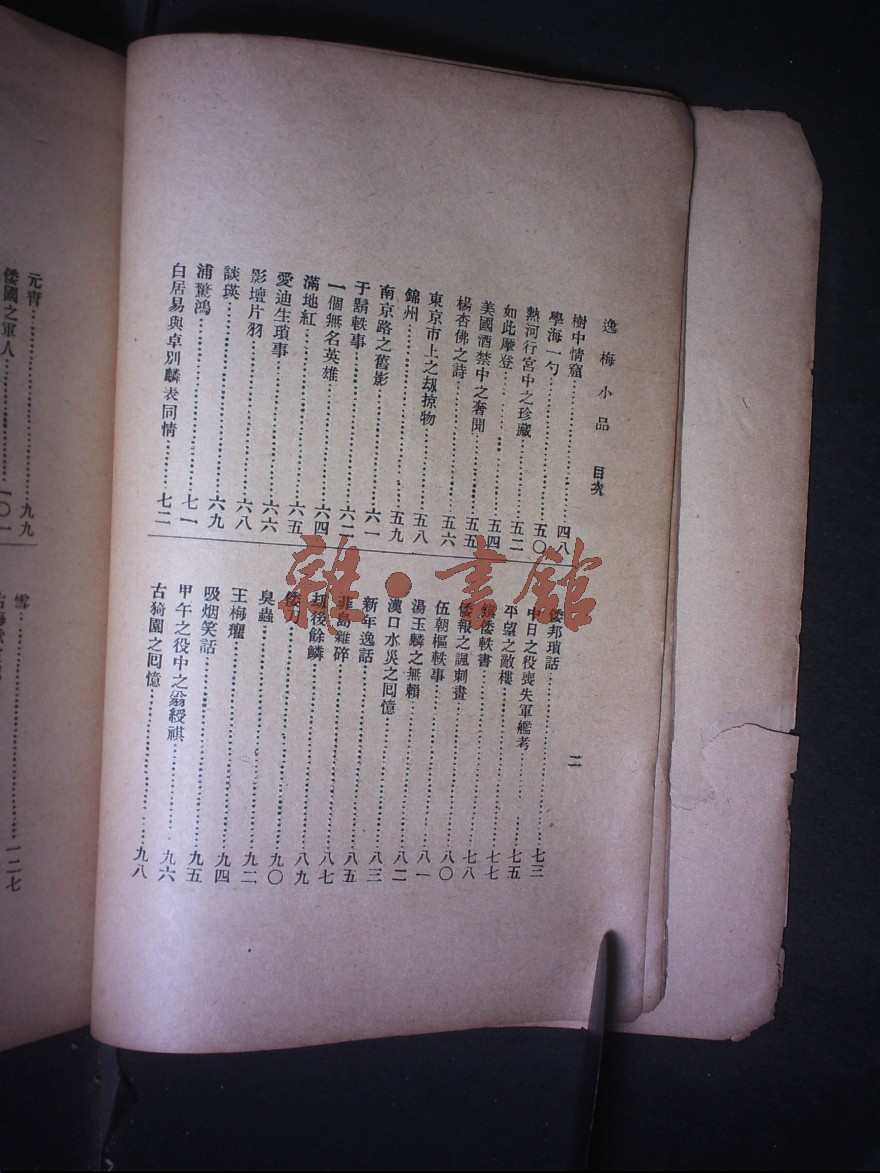 逸梅小品 目次 二
樹中情窟……四八
學海一勺……五〇
熱河行宮中之珍藏……五二
如此摩登……五四
美國酒禁中之奢聞……五五
楊杏佛之詩……五六
東京市上之刼掠物……五八
錦州……五九
南京路之舊影……六一
于鬍軼事……六二
一個無名英雄……六四
滿地紅……六五
愛迪生瑣事……六六
影壇片羽……六八
談瑛……六九
浦驚鴻……七一
白居易與卓別麟表同情……七二
倭邦瑣話……七三
中日之役喪失軍艦考……七五
平望之敵樓……七七
倭軼書……七八
倭報之諷刺畫……八〇
伍朝樞軼事……八一
湯玉麟之無賴……八二
漢口水災之囘憶……八三
新年逸話……八五
菲島雜碎……八七
刼後餘鱗……八九
倭刀……九〇
臭蟲……九二
王梅癯……九四
吸烟笑話……九五
甲午之役中之翁綬祺……九六
古猗園之囘憶……九八
元宵……九九
倭國之軍人……一〇一
雪……一二七
雜·書館